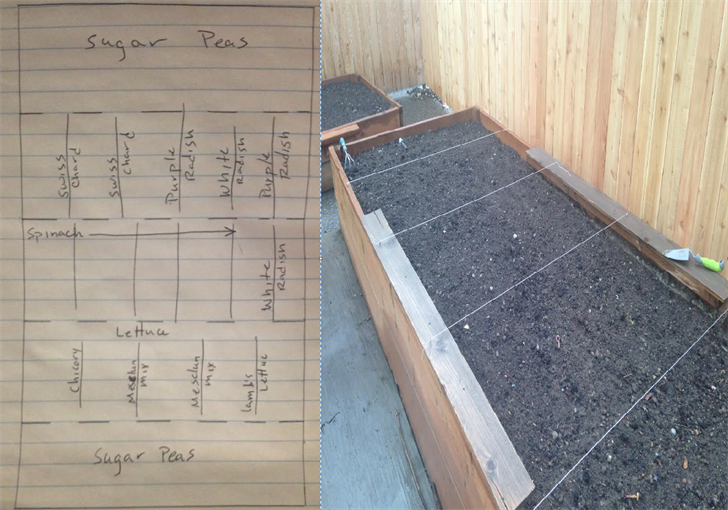 Sugar Peas
Swiss
Chard
Swiss
Chard
Purple
Radish
White
Radish
Purple
Radish
Spinach
White
Radish
Lettuce
Chicory
Mesclun
mix
Mesclun
mix
lamb's
Lettuce
Sugar Peas